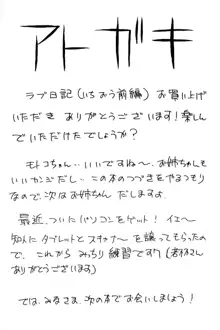 アトガキ
ラブ日記(いちおう前編)お買い上げ
いただき ありがとうございます!楽しん
でいただけたでしょうか?
モトコちゃん…いいですねー、お姉ちゃんも
いいカンジだし、この本のつづきをやるつもり
なので、次はお姉ちゃん だしますよ
最近、ついにパソコンをゲット! イエー
知人にタブレットとスキャナーを譲ってもらったの
で、これから みっちり練習です!
ありがとうございます)
では、みなさま、次の本でお会いしましょう!